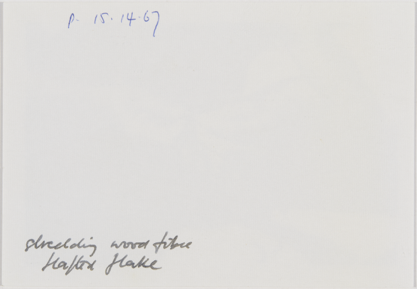 P. 15.14.67
shredding wood fibre
Hafted flake